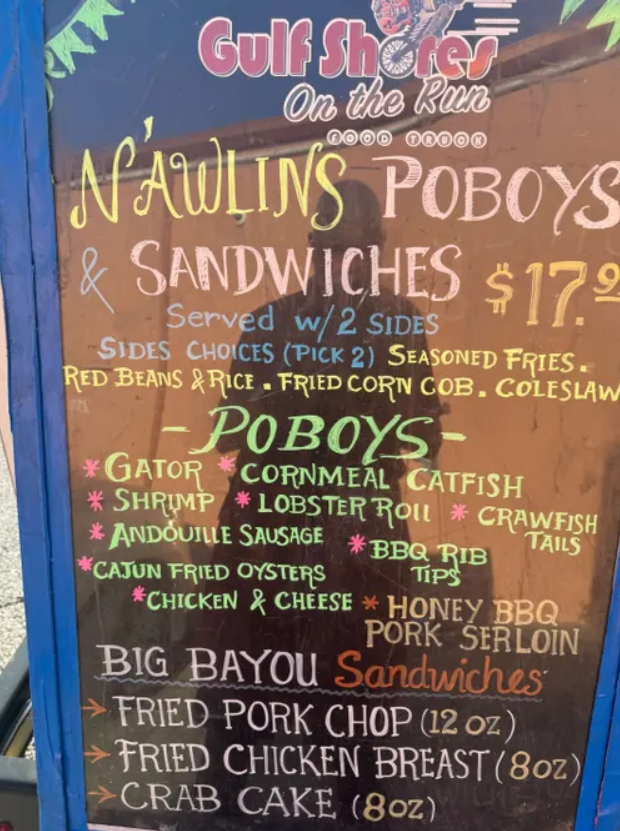 Gulf Shores
On the Run
FOOD TRUCK
N'AWLINS POBOYS
& SANDWICHES $17.9
Served w/2 SIDES
SIDES CHOICES (PICK 2) SEASONED FRIES.
RED BEANS & RICE . FRIED CORN COB . COLESLAW
- POBOYS -
* GATOR * CORNMEAL CATFISH
* SHRIMP * LOBSTER ROLL * CRAWFISH TAILS
* ANDOUILLE SAUSAGE * BBQ RIB TIPS
* CAJUN FRIED OYSTERS
* CHICKEN & CHEESE * HONEY BBQ
PORK SERLOIN
BIG BAYOU Sandwiches
→ FRIED PORK CHOP (12 OZ)
→ FRIED CHICKEN BREAST (8OZ)
→ CRAB CAKE (8OZ)